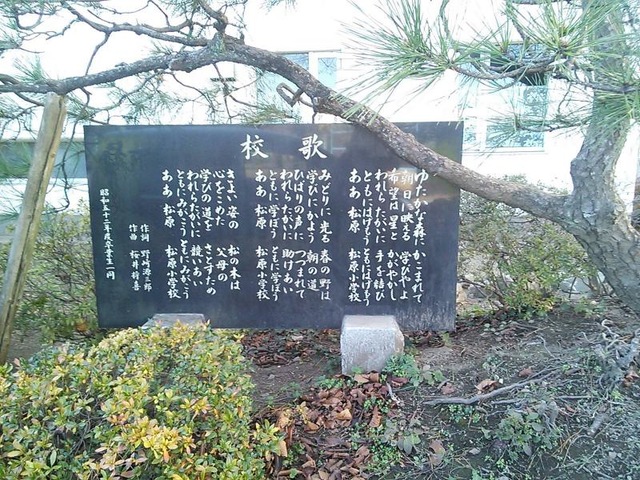 校歌
ゆたかな森に かこまれて
朝日に映える 学びやよ
希望は星と かがやかし
われらたがいに 手を結び
ともにはげもう ともにはげもう
ああ 松原 松原小学校
みどりに光る 春の野は
学びにかよう 朝の道
ひばりの声に つつまれて
われらたがいに 助けあい
ともに学ぼう ともに学ぼう
ああ 松原 松原小学校
きよい姿の 松の木は
心をこめた 父母の
学びの道を さとすため
われらたがいに 競いあい
ともにみがこう ともにみがこう
ああ 松原 松原小学校
作詞 野崎源三郎
作曲 桜井
昭和五十二年度卒業生一同